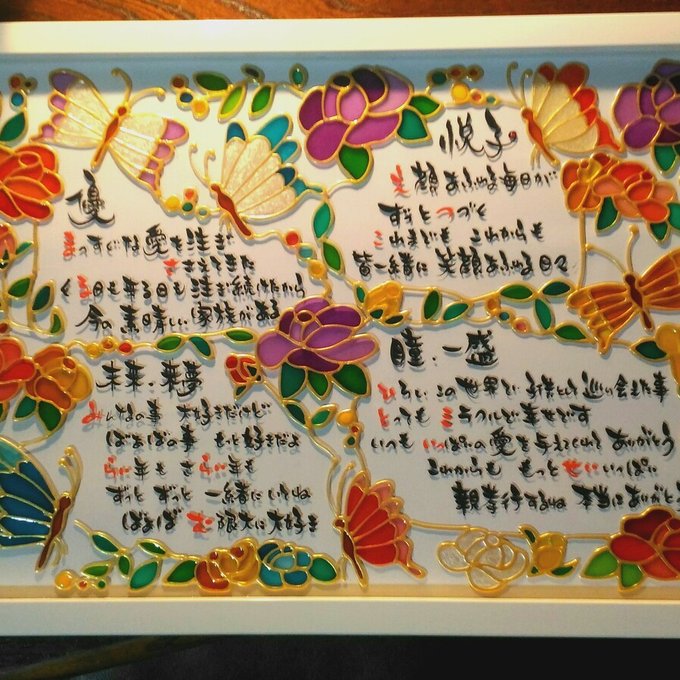 優
まっすぐな愛を注ぎ
ささえてきた
くる日も来る日も注ぎ続けたから
今の素晴しい家族がある
悦子
笑顔あふれる毎日が
ずっとつづく
これまでも これからも
皆一緒に笑顔あふれる日々
未来・来夢
みんなの事 大好きだけど
ばぁばの事 もっと好きだよ
らい年も さらい年も
ずっと ずっと 一緒にいてね
ばぁば む限大に大好き
瞳・一盛
ひろいこの世界で 子供として巡り会えた事
とってもミラクルで幸せです
いつも いっぱいの愛を与えてくれて ありがとう
これからも もっと せいいっぱい
親孝行するね 本当にありがと